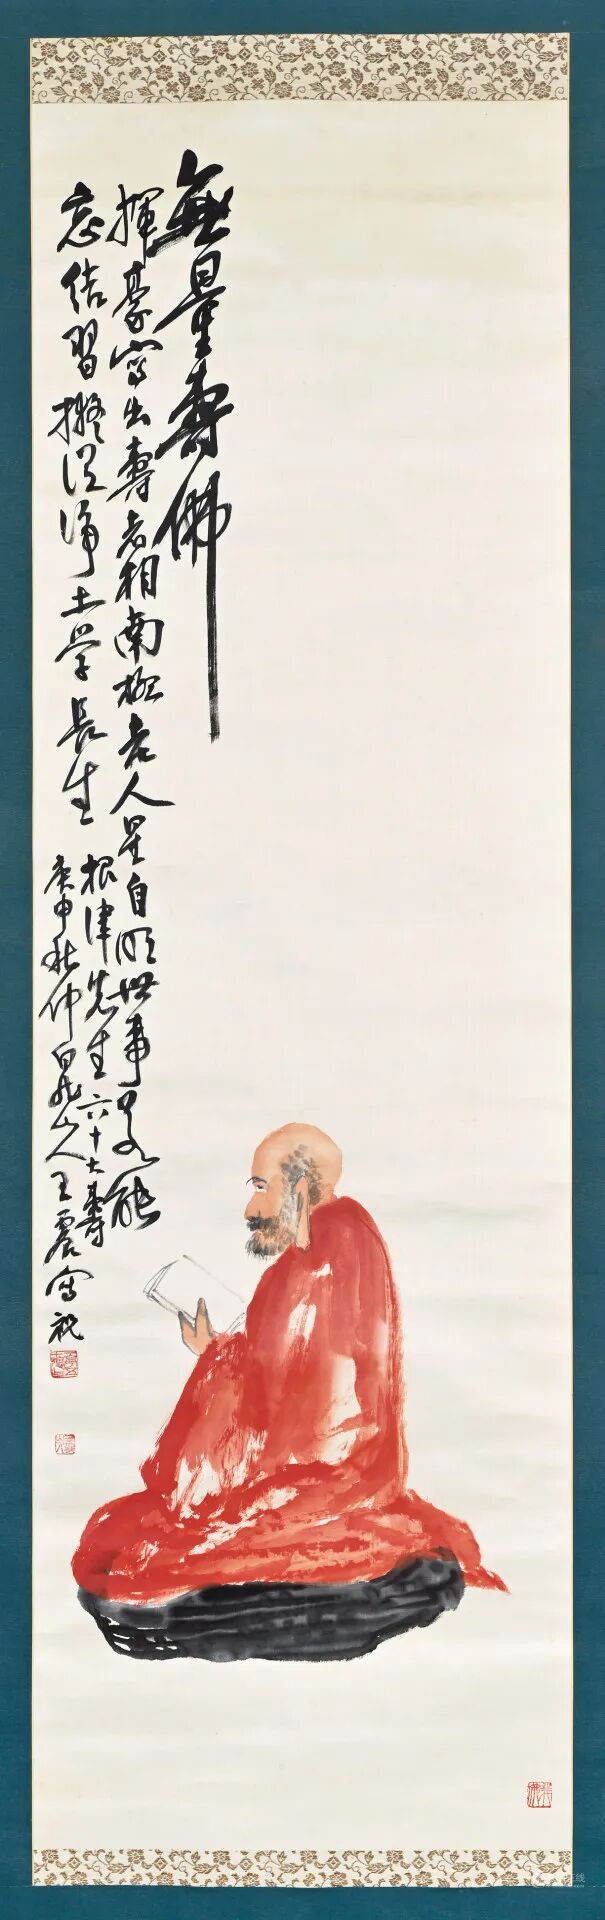 無量壽佛
揮豪寫出壽者相南極老人星自明世事多能
忘結習擬從淨土学長生
根津先生六十大壽
庚申秋仲白龍山人王震寫祝